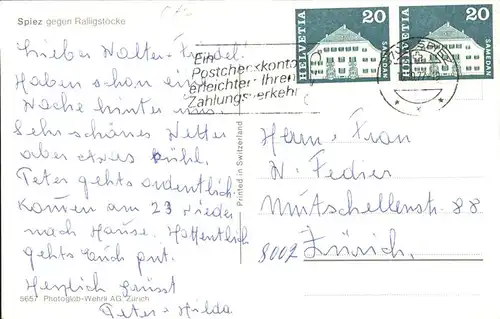 Spiez gegen Ralligstöcke
Lieber Walter - Friedel!
Haben schon eine
Woche hinter uns.
Sehr schönes Wetter
aber etwas kühl.
Peter gehts ordentlich.
Kommen am 23 wieder
nach Hause. Hoffentlich
gehts Euch gut.
Herzlich grüsst
Peter - Hilda
5657 Photoglob-Wehrli AG, Zürich
Printed in Switzerland
Ein
Postcheckkonto
erleichtert Ihren
Zahlungsverkehr
HELVETIA 20 SAMEDAN
HELVETIA 20 SAMEDAN
Herr + Frau
W. Fedier
Mutschellenstr. 88
8002 Zürich.